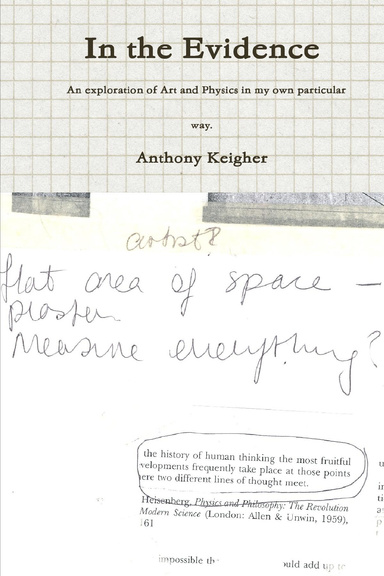 In the Evidence
An exploration of Art and Physics in my own particular
way.
Anthony Keigher
artist?
flat area of space –
plaster
Measure everything?
the history of human thinking the most fruitful
velopments frequently take place at those points
ere two different lines of thought meet.
Heisenberg, Physics and Philosophy: The Revolution
Modern Science (London: Allen & Unwin, 1959),
161
impossible th
ould add up to